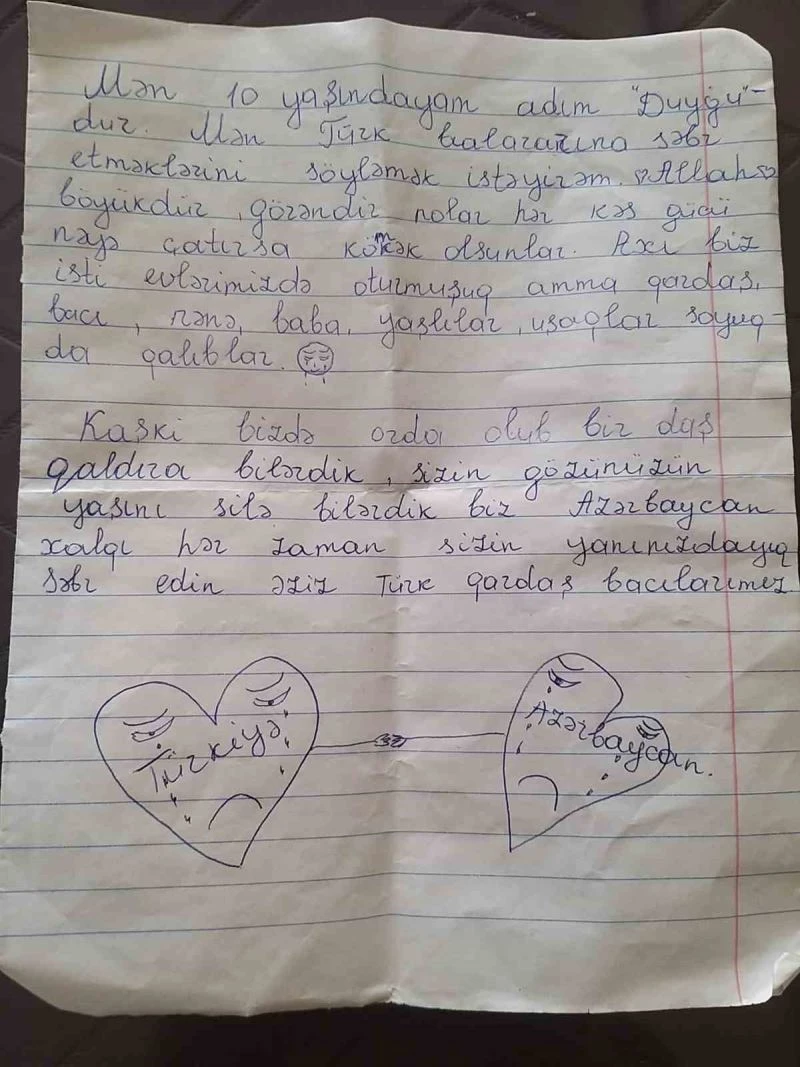 Mən 10 yaşındayam adım "Duyğu"-
dur. Mən Türk balalarına səbr
etməklərini söyləmək istəyirəm. ♡Allah♡
böyükdür, görəndir nolar hər kəs gücü
nəyə çatırsa kömək olsunlar. Axı biz
isti evlərimizdə oturmuşuq amma qardaş,
bacı, nənə, baba, yaşlılar, uşaqlar soyuq-
da qalıblar.
Kaşki bizdə orda olub bir daş
qaldıra bilərdik, sizin gözünüzün
yaşını silə bilərdik biz Azərbaycan
xalqı hər zaman sizin yanınızdayıq
Səbr edin əziz Türk qardaş bacılarımız
Türkiyə
Azərbaycan.